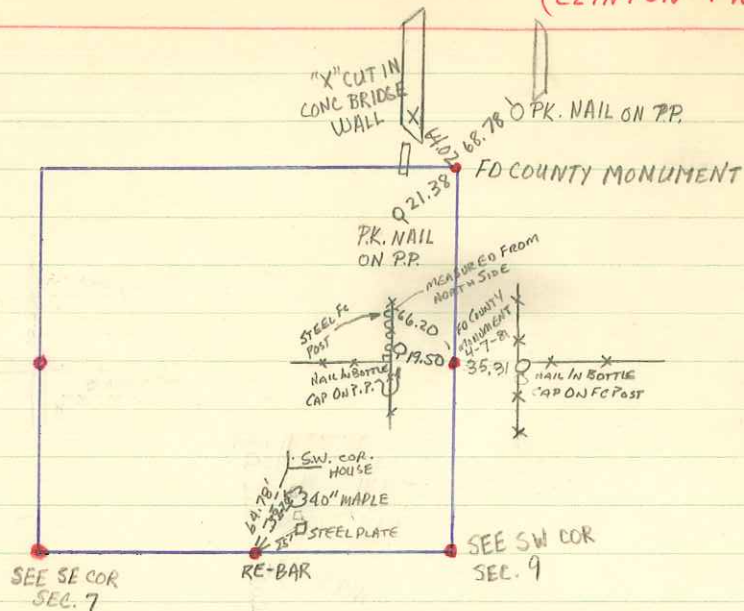 (CLINTON
"X" CUT IN
CONC BRIDGE
WALL
64.02
68.78'
PK. NAIL ON P.P.
FD COUNTY MONUMENT
21.38
P.K. NAIL
ON P.P.
MEASURED FROM
NORTH SIDE
STEEL FC
POST
66.20
FD COUNTY
MONUMENT
4-7-81
19.50
35.31
NAIL IN BOTTLE
CAP ON P.P.
NAIL IN BOTTLE
CAP ON FC POST
S.W. COR.
HOUSE
64.78'
40" MAPLE
STEEL PLATE
SEE SE COR
SEC. 7
RE-BAR
SEE SW COR
SEC. 9